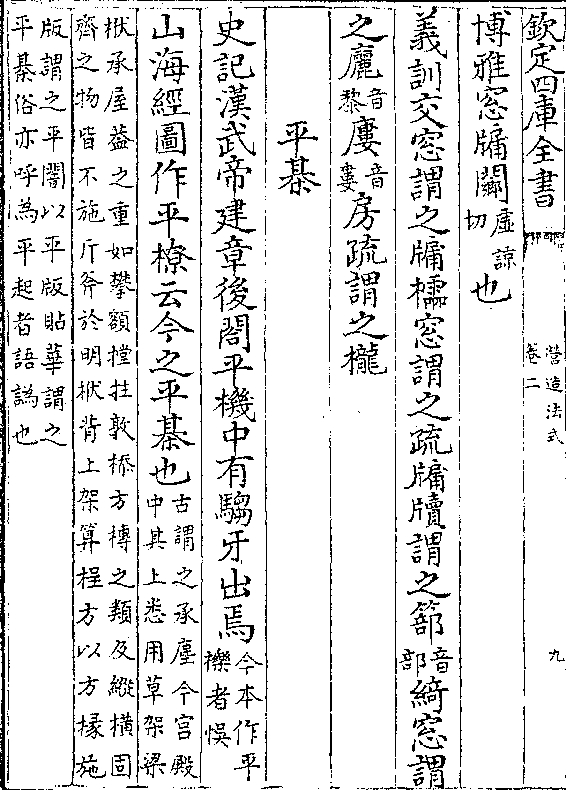 欽定四庫全書
營造法式
卷二
九
博雅窓牖闌虛諒切也
義訓交窓謂之牖櫺窓謂之疏牖牘謂之篰音部綺窓謂
之廲音黎廔音婁房疏謂之櫳
平棊
史記漢武帝建章後閤平機中有騶牙出焉今本作平櫟者悞
山海經圖作平橑云今之平棊也古謂之承塵今宫殿中其上悉用草架梁
栿承屋葢之重如攀額樘拄敦㮇方槫之類及縱横固濟之物皆不施斤斧於明栿背上架算桯方以方椽施
版謂之平闇以平版貼華謂之平棊俗亦呼為平起者語譌也